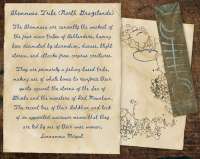 Ahemmusa Tribe (North Grazelands)
The Ahemmusa are normally the weakest of
the four main tribes of Ashlanders, having
been diminished by starvation, disease, blight
storms, and attacks from corprus creatures.
They are primarily a fishing based tribe,
making use of what boons to
against the storms of the Sea of
Ghosts and the monsters of Red Mountain.
The recent loss of their Ashkhan and lack
of an appointed successor means that they
are led by one of their wise women,